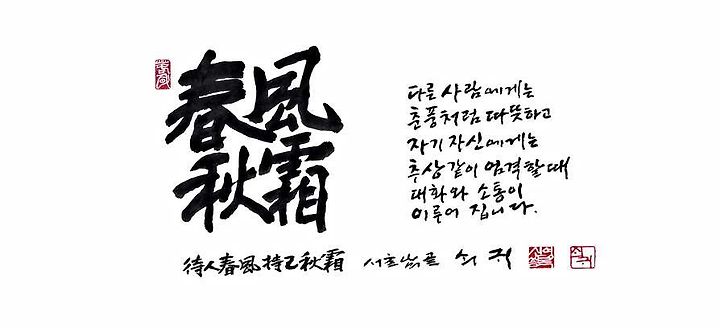 春風
秋霜
다른 사람에게는
춘풍처럼 따뜻하고
자기 자신에게는
추상같이 엄격할 때
대화와 소통이
이루어 집니다.
待人春風 持己秋霜